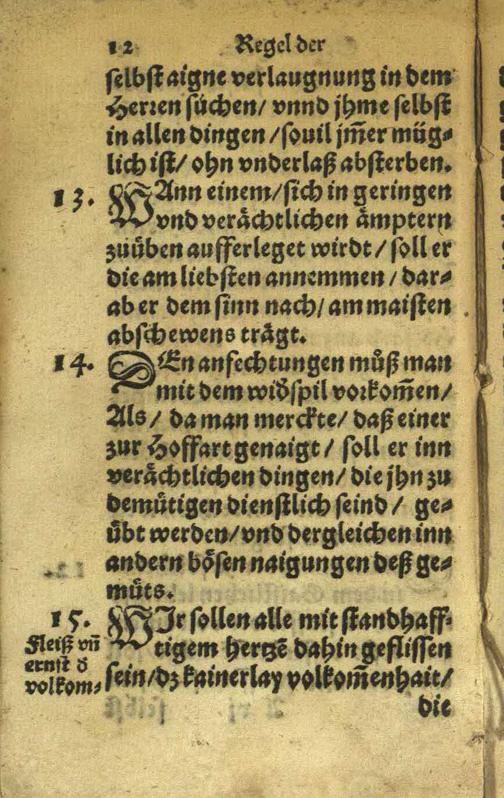 12 Regel der
selbst aigne verlaugnung in dem
Herren süchen/ vnnd jhme selbst
in allen dingen /souil jm̄er müg⸗
lich ist/ ohn vnderlaß absterben.
13. WAnn einem/sich in geringen
vnd verächtlichen ämptern
zuüben aufferleget wirdt/ soll er
die am liebsten annemmen /dar⸗
ab er dem sinn nach/ am maisten
abschewens trägt.
14. DEn anfechtungen müß man
mit dem widspil vorkom̄en/
Als/ da man merckte/ daß einer
zur Hoffart genaigt/ soll er inn
verächtlichen dingen/ die jhn zu
demütigen dienstlich seind/ ge⸗
übt werden/ vnd dergleichen inn
andern bösen naigungen deß ge⸗
müts.
15. WIr sollen alle mit standhaff⸗
tigem hertzē dahin geflissen
sein/dz kainerlay volkom̄enhait/
Fleiß vn̄
ernst d̓
volkom⸗
die